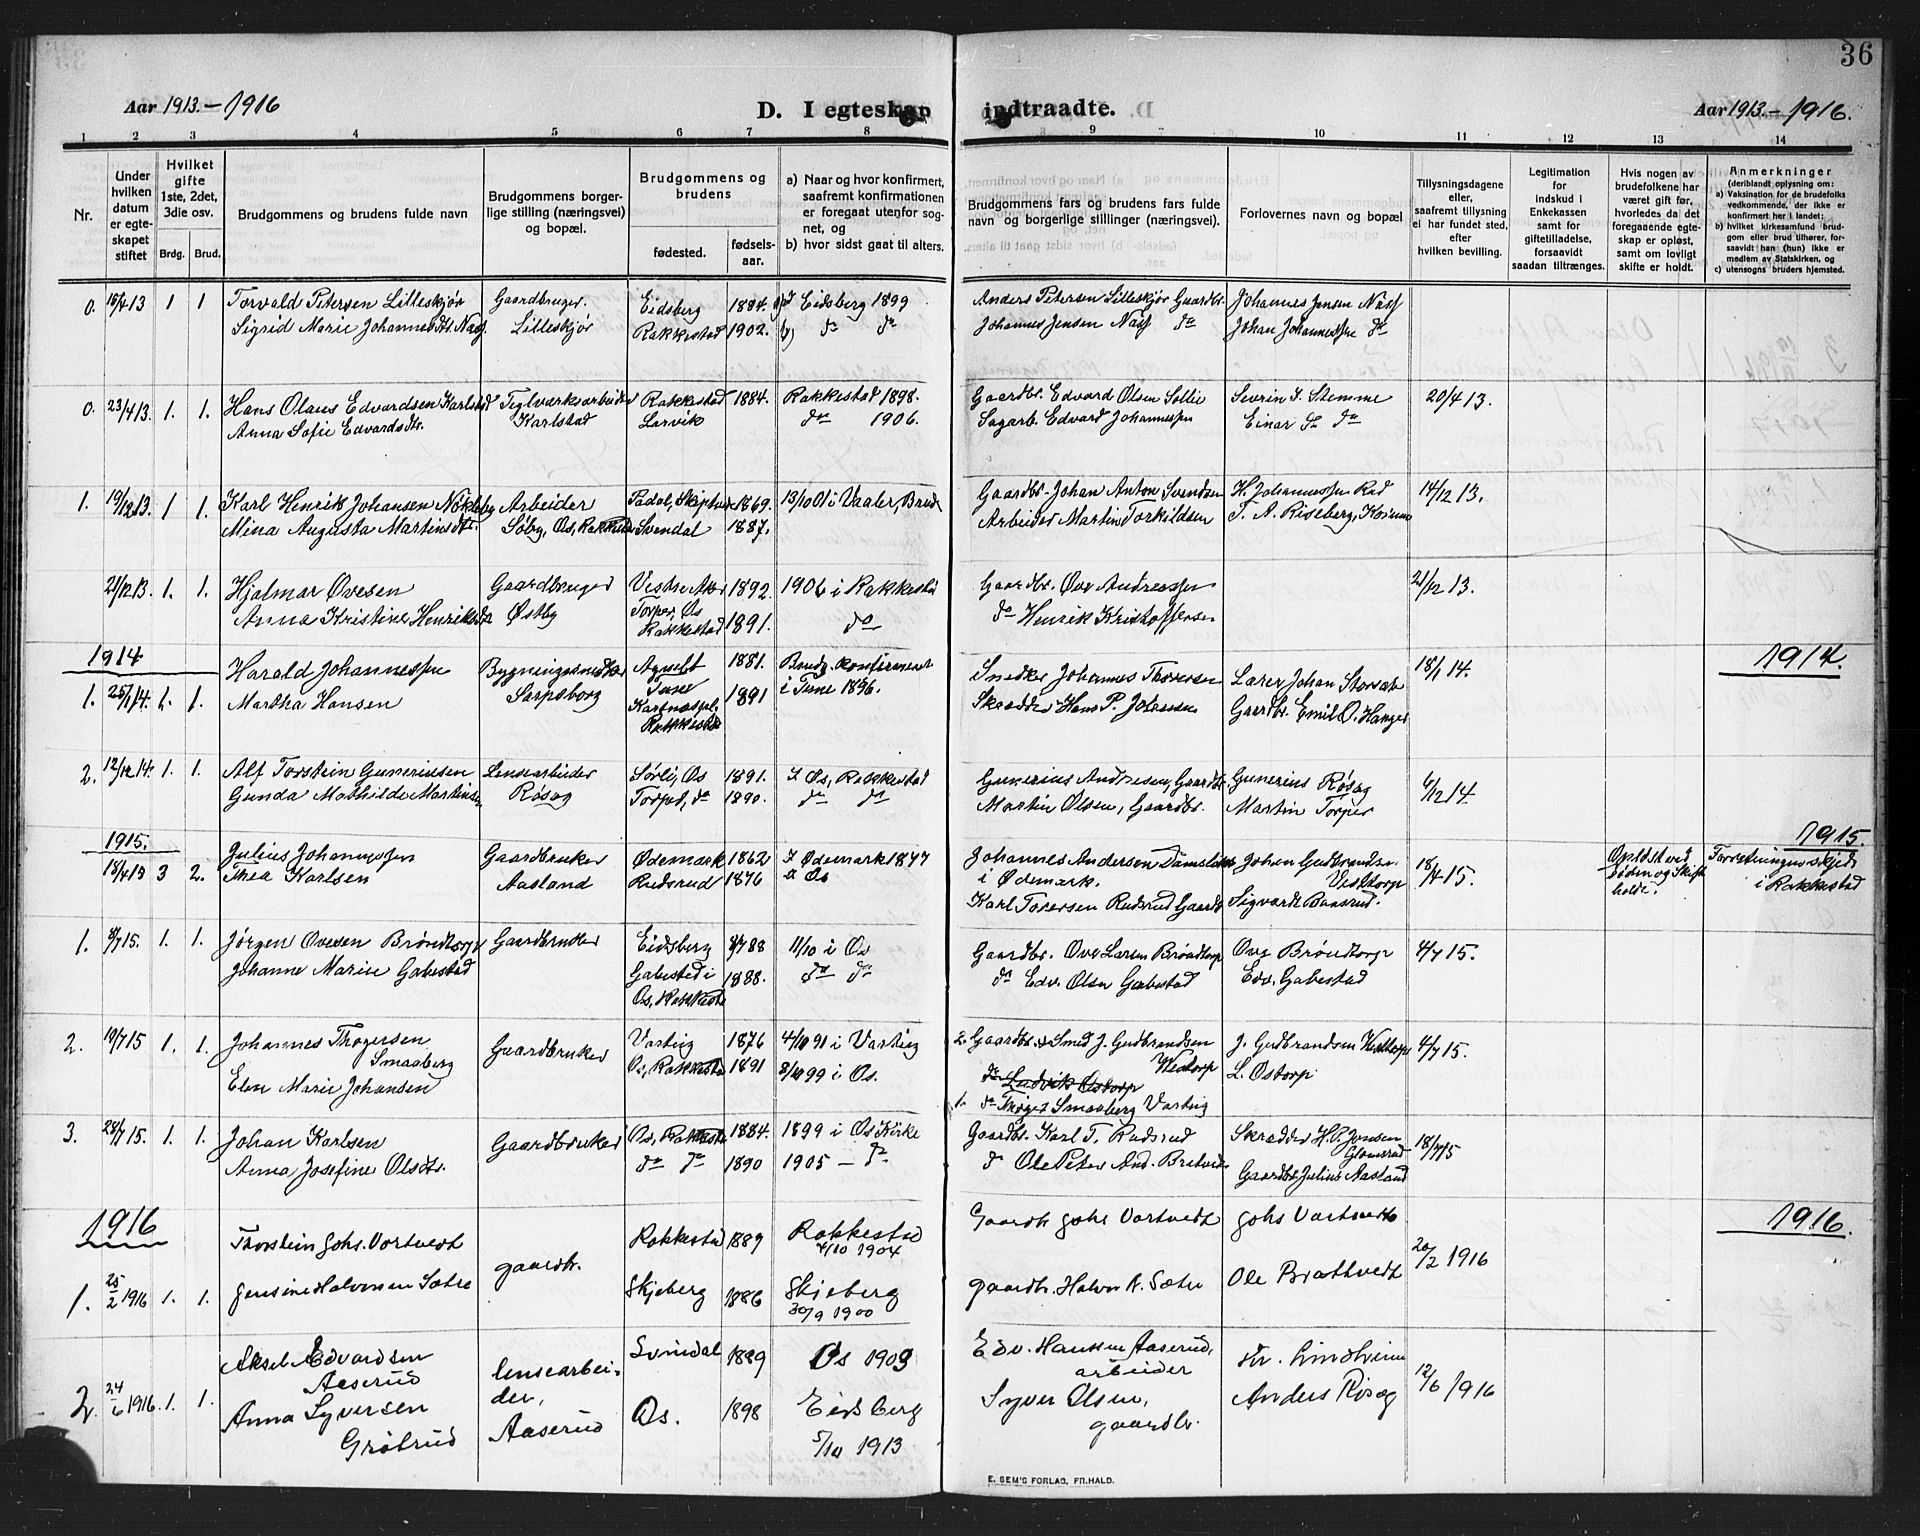 36
Aar 1913.-1916
D. I egteskap indtraadte.
Aar 1913.-1916.
1 2 3 4 5 6 7 8 9 10 11 12 13 14
Nr.
Under hvilken datum er egteskapet stiftet
Hvilket gifte 1ste, 2det, 3die osv.
Brdg. Brud.
Brudgommens og brudens fulde navn
Brudgommens borgerlige stilling (næringsvei) og bopæl.
Brudgommens og brudens
fødested. fødselsaar.
a) Naar og hvor konfirmert, saafremt konfirmationen er foregaat utenfor sognet, og
b) hvor sidst gaat til alters.
Brudgommens fars og brudens fars fulde navn og borgerlige stillinger (næringsvei).
Forlovernes navn og bopæl
Tillysningsdagene eller, saafremt tillysning ei har fundet sted, efter hvilken bevilling.
Legitimation for indskud i Enkekassen samt for giftetilladelse, forsaavidt saadan tiltrænges.
Hvis nogen av brudefolkene har været gift før, hvorledes da det foregaaende egteskap er opløst, samt om lovligt skifte er holdt.
Anmerkninger (deriblandt oplysning om: a) Vaksination for de brudefolks vedkommende, der ikke er konfirmert her i landet; b) hvilket kirkesamfund brudgom eller brud tilhører, forsaavidt han (hun) ikke er medlem av Statskirken, og c) utensogns bruders hjemsted.
0. 13 1 1 Torvald Petersen Lilleskjør Gaardbruger. Eidsberg 1884. Eidsberg 1899 Anders Petersen Lilleskjør Gaardbr. Johannes Jensen Næss
Sigrid Marie Johannesdtr. Næss Lilleskjør Rakkestad 1902. do do Johannes Jensen Næss do Johan Johannessen do
0. 23/4 13. 1. 1. Hans Olaus Edvardsen Karlstad Teglværksarbeider Rakkestad 1884. Rakkestad 1898. Gaardbr. Edvard Olsen Sollie Sevrin J. Stemme 20/4 13.
Anna Sofie Edvardsdtr. Karlstad Larvik do 1906. Sagarb. Edvard Johannessen Einar do do
1. 19/12 13. 1 1. Karl Henrik Johansen Nökleby Arbeider 1869. 13/10 Gaardbr. Johan Anton Svendsen H. Johannessen Rud 14/12 13.
Mina Augusta Martinsdtr. Søby, Os, Rakkestad Svendal 1887. Arbeider Martin Torkildsen T. A. Riseberg,
21/12 13. 1. 1. Hjalmar Ovesen Gaardbruger 1892. 1906 i Rakkestad Gaardbr. Ove Andreassen 21/12 13.
Anna Kristine Henriksdtr Østby Torper, Os Rakkestad 1891. do do Henrik Kristoffersen
1914 1914.
1. 25/1 14. 1. 1. Harald Johannessen 1881. Brudg. konfirmert Snedker Johannes Thoresen Lærer Johan 18/1 14.
Martha Hansen Sarpsborg Tune Rakkestad 1891 i Tune 1896. Skrædder Hans P. Johnsen Gaardbr. Emil O. Hanger
2. 12/12 14. 1. 1. Alf Torstein Guneriusen Lensearbeider Sørli, Os 1891. I Os, Rakkestad Gunerius Andresen, Gaardbr. Gunerius Røsæg 6/12 14.
Gunda Mathilde Martinsen Røsæg Torper, do 1890. do do Martin Olsen, Gaardbr. Martin Torper
1915. 1915.
18/4 15 3 2. Julius Johannessen Gaardbruker Ødemark 1862 I Ødemark 1877 Johannes Andersen i Ødemark. Johan Gudbrandsen Vesttorp 18/4 15. Opløst ved døden og Skifte holdt. Forretningen skjedd i Rakkestad
Thea Karlsen Aasland Rudsrud 1876 Os Karl Torersen Rudsrud Gaardb. Sigvardt Baasrud.
1. 8/7 15. 1. 1. Jørgen Ovesen Brøndtorp Gaardbruker Eidsberg 88 11/10 i Os Gaardbr. Ove Larsen Brøndtorp Ove Brøndtorp 4/7 15.
Johanne Marie Gabestad Gabestad i Os, Rakkestad 1888. do do do Edv. Olsen Gabestad Edv. Gabestad
2. 19/7 15 1. 1. Johannes Thøgersen Smaaberg Gaardbruker Varteig 1876 4/10 91 i Varteig 2. Gaardbr. & Smed J. Gudbrandsen Vestorp J. Gudbrandsen Vesttorp 4/7 15.
Elen Marie Johansen Os, Rakkestad 1891 99 i Os. do Ludvik Østorp L. Ostorp
1. do Thøger Smaaberg Varteig
3. 28/7 15. 1. 1. Johan Karlsen Gaardbruker Os, Rakkestad 1884. 1899 i Os Kirke Gaardbr. Karl T. Rudsrud Skrædder H. P. Jensen 18/7 15
Anna Josefine Olsdtr. do do 1890 1905 – do do Ole Peter And. Gaardbr. Julius Aasland
1916 1916.
1. 25/2 1916 1. 1. Thorstein Johs. Vortvedt gaardbr. Rakkestad 1889 Rakkestad 4/10 1904 Gaardbr Johs Vortvedt Johs Vortvedt 20/2 1916
Jensine Halvorsen Sætre Skjeberg 1886 Skjeberg 30/9 1900 gaardbr. Halvor A. Sætre Ole Brattvedt
2. 24/6 1916. 1. 1. Aksel Edvardsen Aaserud lensearbeider, Aaserud Svindal 1889 Os 1903 Edv. Hansen Aaserud, arbeider Lindheim 12/6 1916
Anna Syversen Grøtrud Os. 1898 Eidsberg 5/10 1913 Syver Olsen, gaardbr. Anders Røsæg
E. SEM'S FORLAG, FR.HALD.